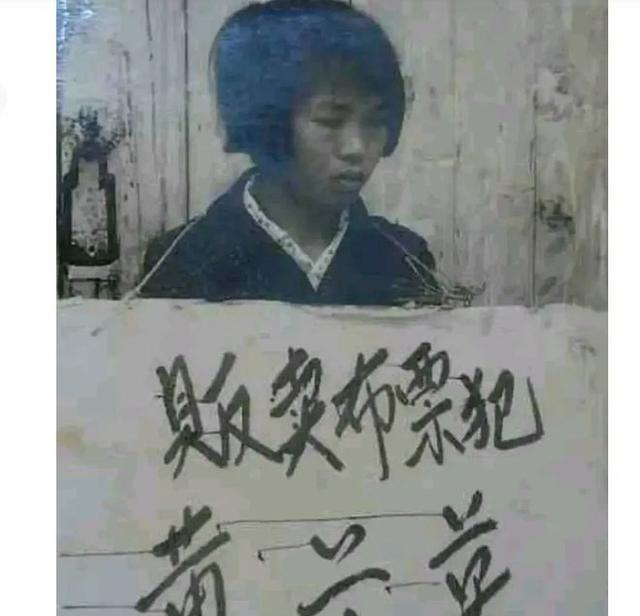 販卖布票犯
黄